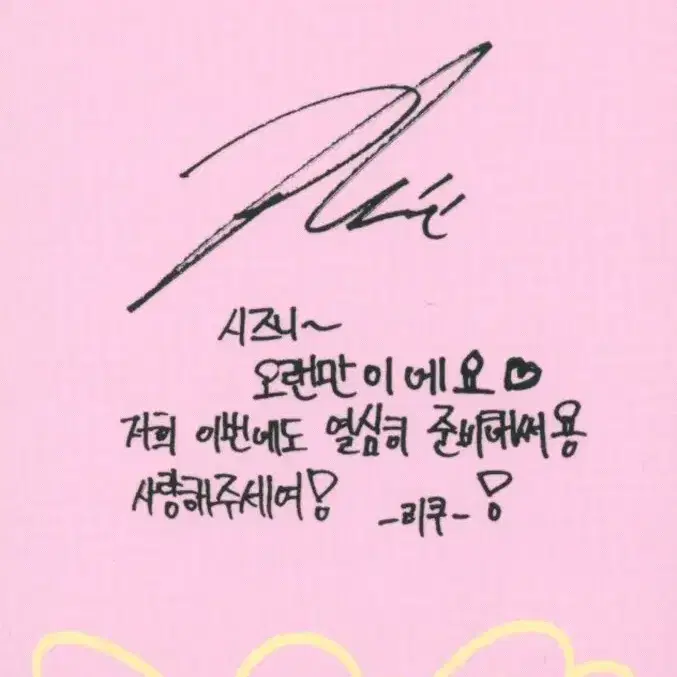 시즈니~
오랜만이에요♥
저희 이번에도 열심히 준비해써용
사랑해주세여! -리쿠- !